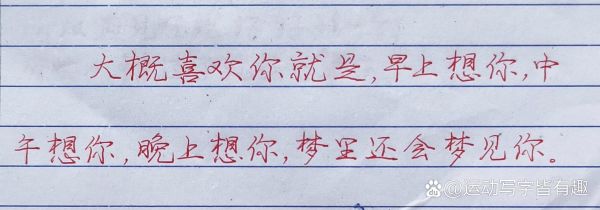 大概喜欢你就是,早上想你,中
午想你,晚上想你,梦里还会梦见你。
@运动写字皆有趣